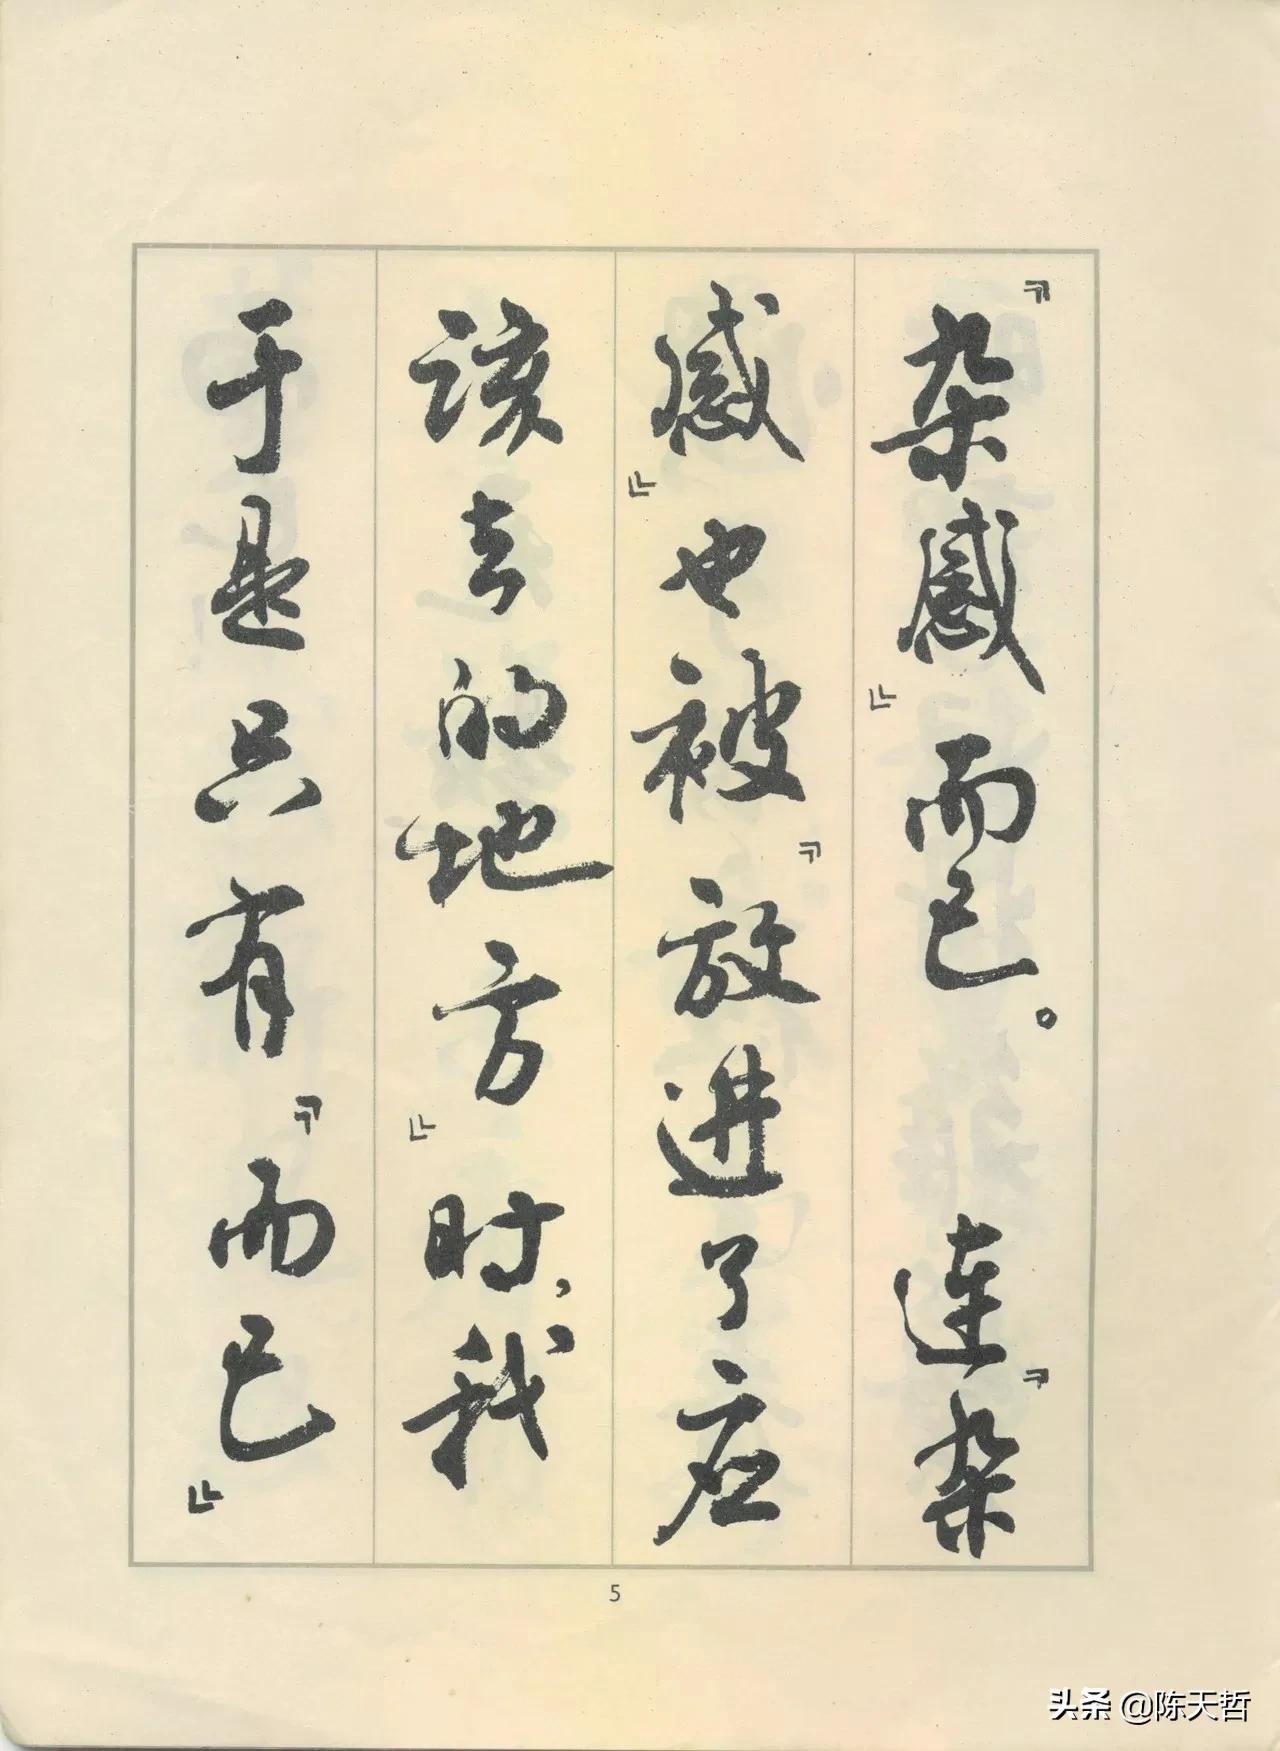 『杂感』而已。 连『杂
感』也被『放进了应
该去的地方』时，我
于是只有『而已』
5
头条 @陈天哲